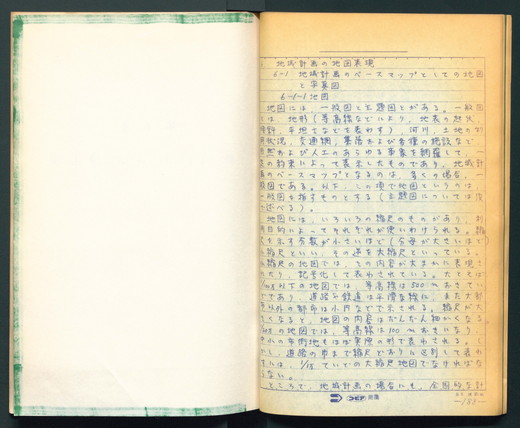 地域計画の地図表現
6-1 地域計画のベースマップとしての地図
と写真図
6-1-1 地図
地図には、一般図と主題図とがある。一般図
とは 地形(等高線などにより、地表の起伏
、平坦さなどを表わす)、河川、土地の利
用状況、交通網、集落および各種の施設など
自然および人工のあらゆる事象を網羅して、一
定の約束によって表示したものであり、地域計
画のベースマップとなるのは、多くの場合、一
般図である。以下、この項で地図というのは、
一般図を指すものとする(主題図については後
に述べる)。
地図には、いろいろの縮尺のものがあり、利
用目的によってそれぞれが使いわけられる。縮
尺を示す分数が小さいほど(分母が大きいほど)
小縮尺といい、その逆を大縮尺といっている。
小縮尺の地図では、その内容が大まかに表現さ
れたり、記号化して表わされている。たとえば
以下の地図では 等高線は500mおきてい
どであり、道路や鉄道は平滑な線に、また大都
市以外の都市は小円などで示される。縮尺が大
きくなると、地図の内容はだんだん細かくなる。
の地図では、等高線は100mおきになり
中小の市街地もほぼ実際の形で表わされる。し
かし、道路の巾まで縮尺どおりに区別して表わ
すには、ていどの大縮尺地図でなければな
らない。
ところで、地域計画の場合にも、全国的な計
コピア 南国